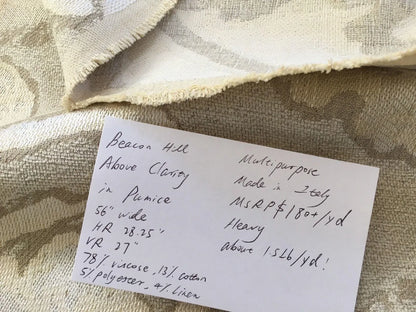 Beacon Hill
Above Clarity
in Pumice
56" wide
HR 28.25"
VR 27"
78% viscose, 13% cotton
5% polyester, 4% Linen
Multipurpose
Made in Italy
MSRP $180+/yd
Heavy
above 1.5Lb/yd!